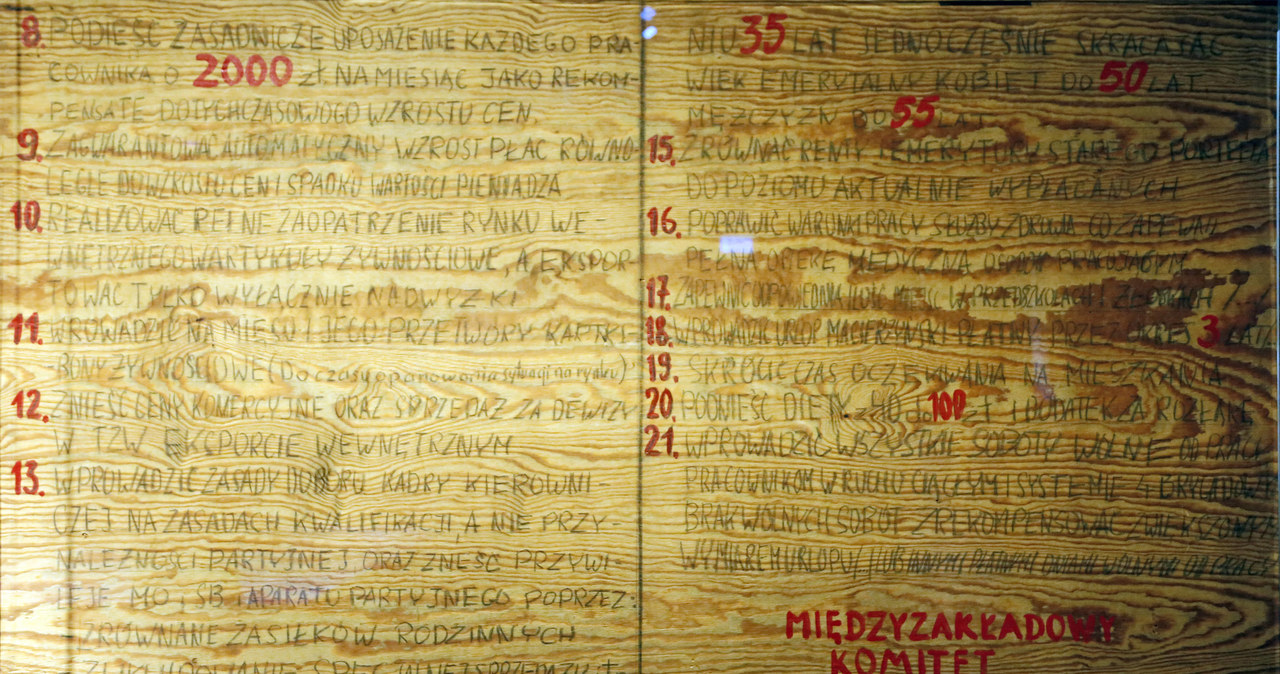 8. PODIEŚĆ ZASADNICZE UPOSAŻENIE KAŻDEGO PRA-
COWNIKA O 2000 zŁ NA MIESIĄC JAKO REKOM-
PENSATĘ DOTYCHCZASOWOGO WZROSTU CEN.
9. ZAGWARANTOWAĆ AUTOMATYCZNY WZROST PŁAC RÓWNO-
LEGLE DO WZROSTU CEN I SPADKU WARTOŚCI PIENIĄDZA
10. REALIZOWAĆ PEŁNE ZAOPATRZENIE RYNKU WE-
WNĘTRZNEGO W ARTYKUŁY ŻYWNOŚCIOWE, A EKSPOR-
TOWAĆ TYLKO WYŁĄCZNIE NADWYŻKI
11. WROWADZIĆ NA MIĘSO I JEGO PRZETWORY KARTKI-
-BONY ŻYWNOŚCIOWE (Do czasu opanowania sytuacji na rynku)
12. ZNIEŚĆ CENY KOMERCYJNE ORAZ SPRZEDAŻ ZA DEWIZY
W TZW. EKSPORCIE WEWNĘTRZNYM
13. WPROWADZIĆ ZASADY DOBORU KADRY KIEROWNI-
CZEJ NA ZASADACH KWALIFIKACJI, A NIE PRZY-
NALEŻNOŚCI PARTYJNEJ ORAZ ZNIEŚĆ PRZYWI-
LEJE MO, SB i APARATU PARTYJNEGO POPRZEZ:
- ZRÓWNANIE ZASIŁKÓW RODZINNYCH
- ZLIKWIDOWANIE SPECJALNEJ SPRZEDAŻY
NIU 35 LAT JEDNOCZEŚNIE SKRACAJĄC
WIEK EMERYTALNY KOBIET DO 50 LAT
MĘŻCZYZN DO 55 LAT
15. ZRÓWNAĆ RENTY I EMERYTURY STAREGO PORTFELA
DO POZIOMU AKTUALNIE WYPŁACANYCH
16. POPRAWIĆ WARUNKI PRACY SŁUŻBY ZDROWIA CO ZAPEWNI
PEŁNĄ OPIEKĘ MEDYCZNĄ OSOBOM PRACUJĄCYM
17. ZAPEWNIĆ ODPOWIEDNIĄ ILOŚĆ MIEJSC W PRZEDSZKOLACH I ŻŁOBKACH
18. WPROWADZIĆ URLOP MACIERZYŃSKI PŁATNY PRZEZ OKRES 3 LAT
19. SKRÓCIĆ CZAS OCZEKIWANIA NA MIESZKANIA
20. PODNIEŚĆ DIETY z 40 do 100 zł I DODATEK ZA ROZŁĄKĘ
21. WPROWADZIĆ WSZYSTKIE SOBOTY WOLNE OD PRACY
PRACOWNIKOM W RUCHU CIĄGŁYM I SYSTEMIE 4-BRYGADOWYM
BRAK WOLNYCH SOBÓT ZREKOMPENSOWAĆ ZWIĘKSZONYM
WYMIAREM URLOPU LUB INNYMI PŁATNYMI DNIAMI WOLNYMI OD PRACY
MIĘDZYZAKŁADOWY
KOMITET